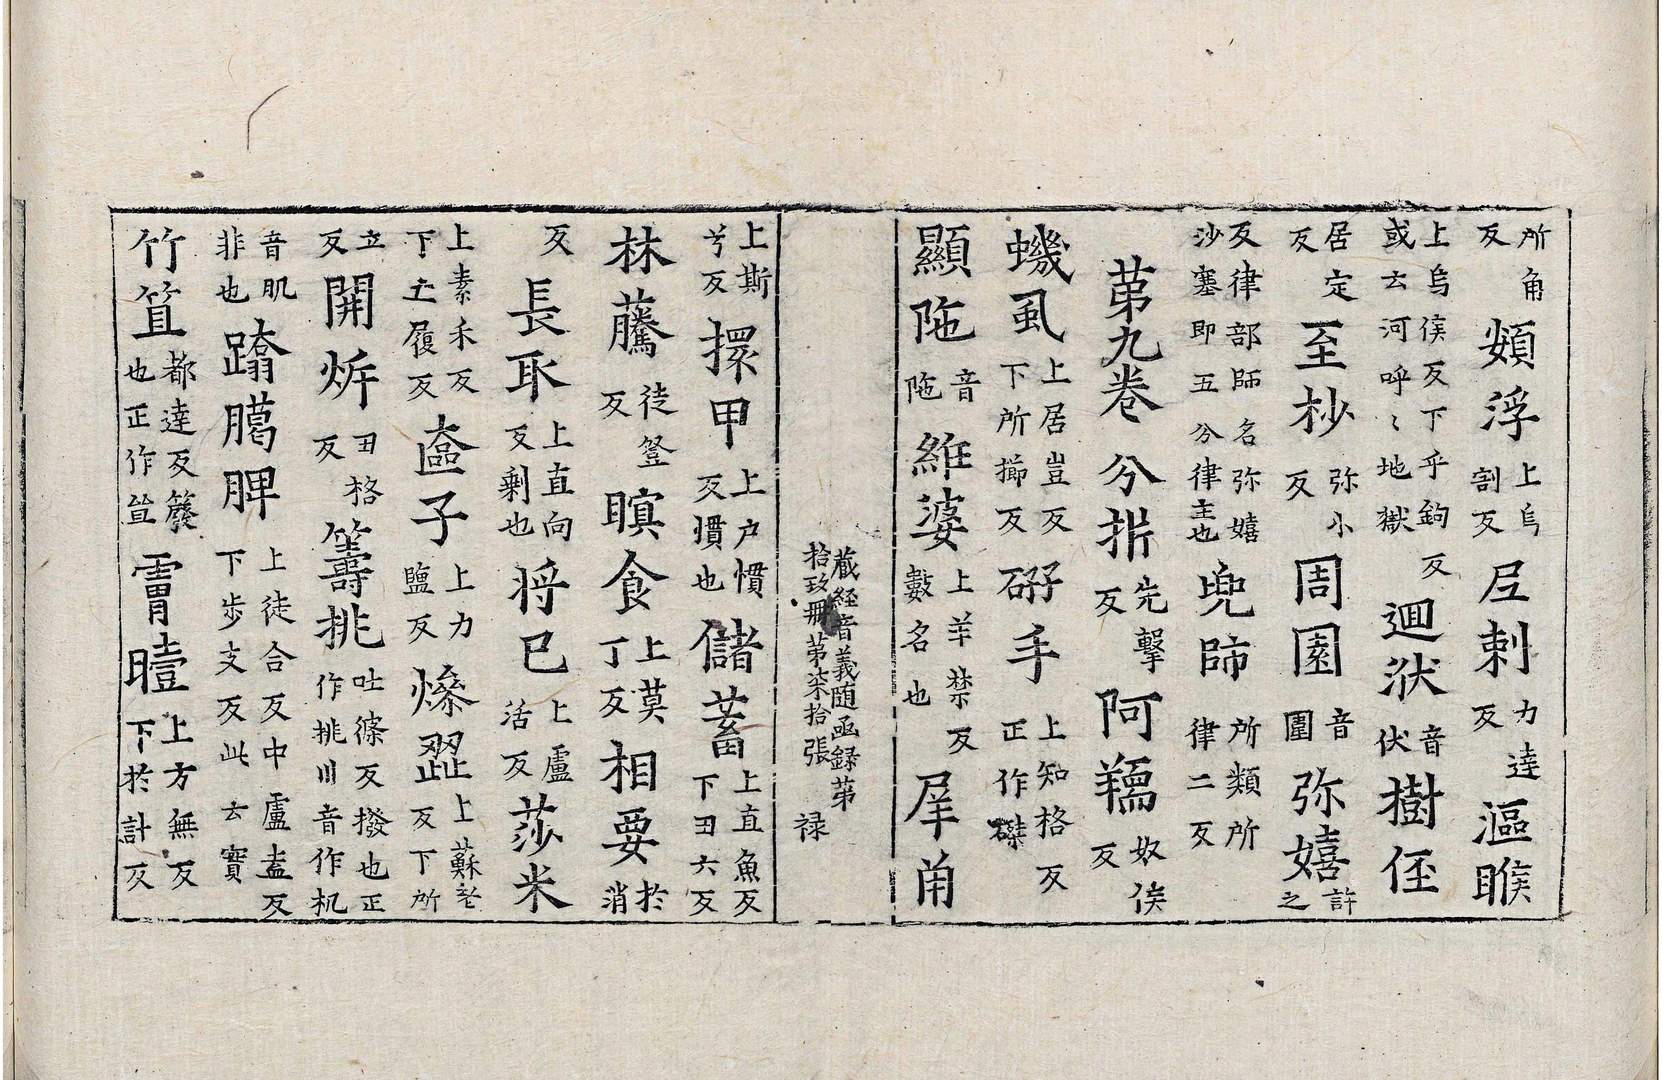 所角反頞浮上烏割反𡰱剌力達反漚睺
上烏侯反下乎鉤反或云河呼〻地獄迴洑音伏樹侄
居定反至杪弥小反周圊音圍弥嬉許之
反律部師名弥嬉沙塞即五分律主也兜師所類所律二反
苐九卷分㭊先擊反阿𦎟奴侯反
蟣虱上居豈反下所擳反硏手上知格反正作磔
顯陁音陁維婆上羊禁反數名也屖角
藏経音義随函録第拾玖冊苐柒拾張 禄
上斯兮反擐甲上户慣反慣也儲蓄上直魚反下丑六反
林藤徒登反瞑食上莫丁反相要於消
反長取上直向反剩也将巳上盧活反莎米
上素禾反下土履反奩子上力鹽反燥澀上蘇老反下所
立反開㭊丑格反籌挑吐篠反撥也正作挑川音作机
音肌非也蹹臈脾上徒合反中盧盍反下步支反此云寳
竹笪都達反籧也正作笪霄曀上方無反下於計反